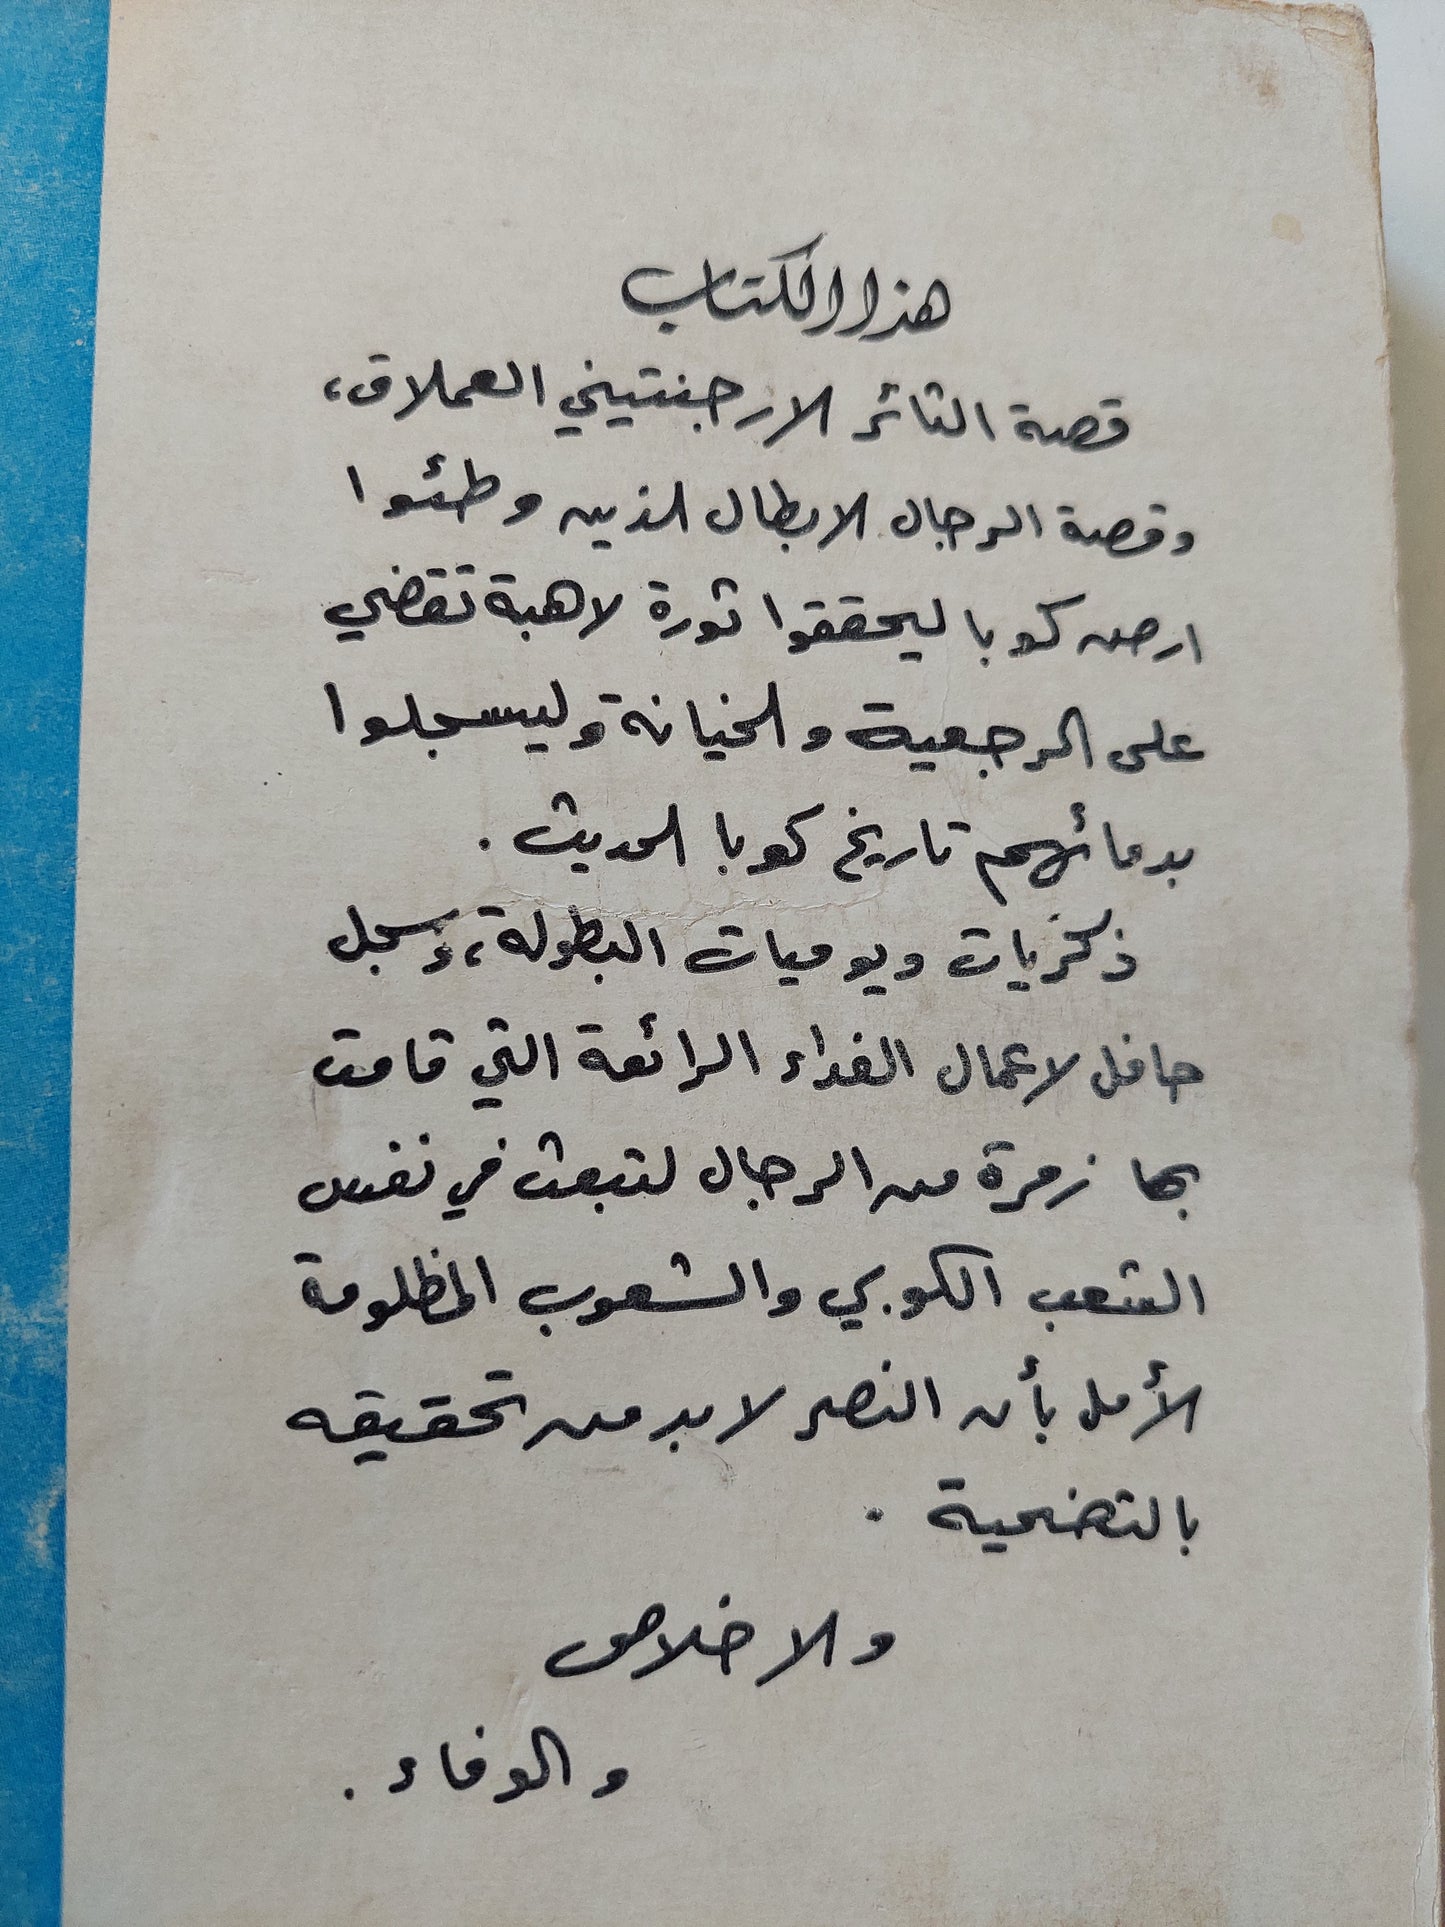 هذا الكتاب
قصة الثائر الارجنتيني العملاق،
وقصة الرجال الابطال الذين وطئوا
ارض كوبا ليحققوا ثورة لاهبة تقضي
على الرجعية والخيانة وليسجلوا
بدمائهم تاريخ كوبا الحديث .
ذكريات ويوميات البطولة، وسجل
حافل لاعمال الفداء الرائعة التي قامت
بها زمرة من الرجال لتبعث في نفس
الشعب الكوبي والشعوب المظلومة
الأمل بأن النصر لا بد من تحقيقه
بالتضحية .
والاخلاص
والوفاء .